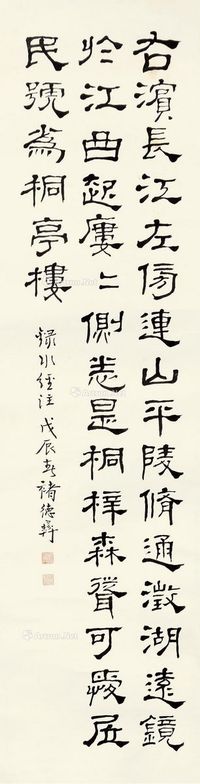 右濱長江左傍連山平陵脩通澂湖遠鏡
於江曲起樓〻側悉是桐梓森聳可愛居
民號為桐亭樓
錄水經注 戊辰春 褚德彝